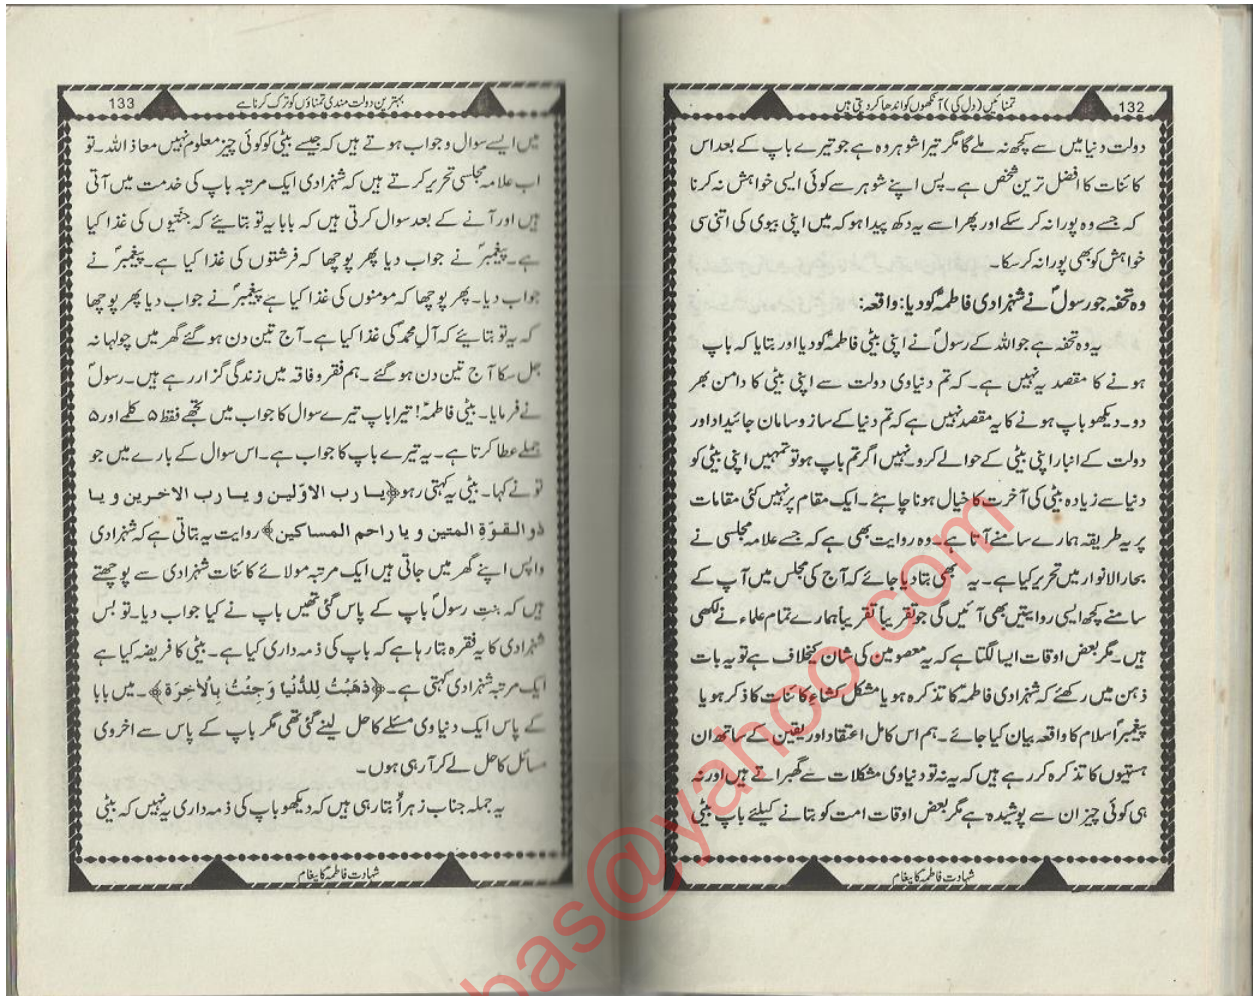 تمنائیں (دل کی) آنکھوں کو اندھا کر دیتی ہیں
132
دولت دنیا میں سے کچھ نہ ملے گا مگر تیرا شوہر وہ ہے جو تیرے باپ کے بعد اس
کائنات کا افضل ترین شخص ہے۔ پس اپنے شوہر سے کوئی ایسی خواہش نہ کرنا
کہ جسے وہ پورا نہ کر سکے اور پھر اسے یہ دکھ پیدا ہو کہ میں اپنی بیوی کی اتنی سی
خواہش کو بھی پورا نہ کر سکا۔
وہ تحفہ جو رسولؐ نے شہزادی فاطمہؑ کو دیا: واقعہ:
یہ وہ تحفہ ہے جو اللہ کے رسولؐ نے اپنی بیٹی فاطمہؑ کو دیا اور بتایا کہ باپ
ہونے کا مقصد یہ نہیں ہے۔ کہ تم دنیاوی دولت سے اپنی بیٹی کا دامن بھر
دو۔ دیکھو باپ ہونے کا یہ مقصد نہیں ہے کہ تم دنیا کے ساز و سامان جائیداد اور
دولت کے انبار اپنی بیٹی کے حوالے کرو۔ نہیں اگر تم باپ ہو تو تمہیں اپنی بیٹی کو
دنیا سے زیادہ بیٹی کی آخرت کا خیال ہونا چاہئے۔ ایک مقام پر نہیں کئی مقامات
پر یہ طریقہ ہمارے سامنے آتا ہے۔ وہ روایت بھی ہے کہ جسے علامہ مجلسی نے
بحار الانوار میں تحریر کیا ہے۔ یہ بھی بتا دیا جائے کہ آج کی مجلس میں آپ کے
سامنے کچھ ایسی روایتیں بھی آئیں گی جو تقریباً تقریباً ہمارے تمام علماء نے لکھی
ہیں۔ مگر بعض اوقات ایسا لگتا ہے کہ یہ معصومین کی شان کیخلاف ہے تو یہ بات
ذہن میں رکھئے کہ شہزادی فاطمہؑ کا تذکرہ ہو یا مشکل کشاءِ کائنات کا ذکر ہو یا
پیغمبرؐ اسلام کا واقعہ بیان کیا جائے۔ ہم اس کامل اعتقاد اور یقین کے ساتھ ان
ہستیوں کا تذکرہ کر رہے ہیں کہ یہ نہ تو دنیاوی مشکلات سے گھبراتے ہیں اور نہ
ہی کوئی چیز ان سے پوشیدہ ہے مگر بعض اوقات امت کو بتانے کیلئے باپ بیٹی
شہادت فاطمہؑ کا پیغام
بہترین دولت مندی تمناؤں کو ترک کرنا ہے
133
میں ایسے سوال و جواب ہوتے ہیں کہ جیسے بیٹی کو کوئی چیز معلوم نہیں معاذ اللہ۔ تو
اب علامہ مجلسی تحریر کرتے ہیں کہ شہزادی ایک مرتبہ باپ کی خدمت میں آتی
ہیں اور آنے کے بعد سوال کرتی ہیں کہ بابا یہ تو بتائیے کہ جنّتیوں کی غذا کیا
ہے۔ پیغمبرؐ نے جواب دیا پھر پوچھا کہ فرشتوں کی غذا کیا ہے۔ پیغمبرؐ نے
جواب دیا۔ پھر پوچھا کہ مومنوں کی غذا کیا ہے پیغمبرؐ نے جواب دیا پھر پوچھا
کہ یہ تو بتائیے کہ آلِ محمدؐ کی غذا کیا ہے۔ آج تین دن ہو گئے گھر میں چولہا نہ
جل سکا آج تین دن ہو گئے۔ ہم فقر و فاقہ میں زندگی گزار رہے ہیں۔ رسولؐ
نے فرمایا۔ بیٹی فاطمہؑ! تیرا باپ تیرے سوال کا جواب میں تجھے فقط ۵ کلمے اور ۵
جملے عطا کرتا ہے۔ یہ تیرے باپ کا جواب ہے۔ اس سوال کے بارے میں جو
تو نے کہا۔ بیٹی یہ کہتی رہو ﴿یا رب الاوّلین و یا رب الاخرین و یا
ذو القوّۃ المتین و یا راحم المساکین﴾ روایت یہ بتاتی ہے کہ شہزادی
واپس اپنے گھر میں جاتی ہیں ایک مرتبہ مولائے کائنات شہزادی سے پوچھتے
ہیں کہ بنتِ رسولؐ باپ کے پاس گئی تھیں باپ نے کیا جواب دیا۔ تو بس
شہزادی کا یہ فقرہ بتا رہا ہے کہ باپ کی ذمہ داری کیا ہے۔ بیٹی کا فریضہ کیا ہے
ایک مرتبہ شہزادی کہتی ہے۔ ﴿ذَهَبْتُ لِلدُّنْیا وَ جِئْتُ بِالْاٰخِرَة﴾۔ میں بابا
کے پاس ایک دنیاوی مسئلے کا حل لینے گئی تھی مگر باپ کے پاس سے اخروی
مسائل کا حل لے کر آ رہی ہوں۔
یہ جملہ جناب زہراؑ بتا رہی ہیں کہ دیکھو باپ کی ذمہ داری یہ نہیں کہ بیٹی
شہادت فاطمہؑ کا پیغام
bas@yahoo.com